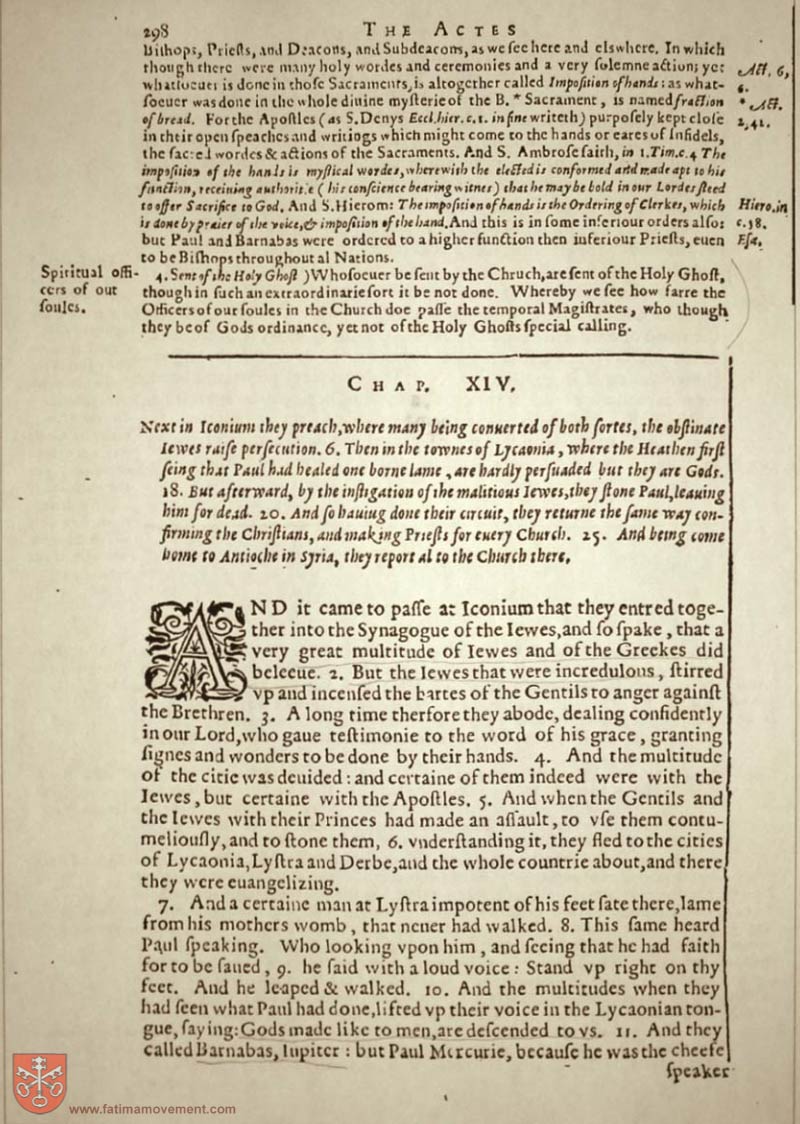 298 THE ACTES
Biſhops, Prieſts, and Deacons, and Subdeacons, as we ſee here and elswhere. In which
though there were many holy wordes and ceremonies and a very ſolemne action; yet
whatſoeuer is done in thoſe Sacraments, is altogether called Impoſition of hands: as what-
ſoeuer was done in the whole diuine myſterie of the B. * Sacrament, is named fraction
of bread. For the Apoſtles (as S. Denys Eccl. hier. c. 1. in fine writeth) purpoſely kept cloſe
in their open ſpeaches and writings which might come to the hands or eares of Infidels,
the ſacred wordes & actions of the Sacraments. And S. Ambroſe ſaith, in 1. Tim. c. 4 The
impoſition of the hands is myſtical wordes, wherewith the elected is conformed and made apt to his
function, receiuing authoritie (his conſcience bearing witnes) that he may be bold in our Lordes ſteed
to offer Sacrifice to God. And S. Hierom: The impoſition of hands is the Ordering of Clerkes, which
is done by praier of the voice, & impoſition of the hand. And this is in ſome inferiour orders alſo:
but Paul and Barnabas were ordered to a higher function then inferiour Prieſts, euen
to be Biſhops throughout al Nations.
4. Sent of the Holy Ghoſt) Whoſoeuer be ſent by the Chruch, are ſent of the Holy Ghoſt,
though in ſuch an extraordinarie ſort it be not done. Whereby we ſee how farre the
Officers of our ſoules in the Church doe paſſe the temporal Magiſtrates, who though
they be of Gods ordinance, yet not of the Holy Ghoſts ſpecial calling.
Act. 6,
6.
* Act.
2, 41.
Hiero. in
c. 58.
Eſa.
Spiritual offi-
cers of our
ſoules.
CHAP. XIV.
Next in Iconium they preach, where many being conuerted of both ſortes, the obſtinate
Iewes raiſe perſecution. 6. Then in the townes of Lycaonia, where the Heathen firſt
ſeing that Paul had healed one borne lame, are hardly perſuaded but they are Gods.
18. But afterward, by the inſtigation of the malitious Iewes, they ſtone Paul, leauing
him for dead. 20. And ſo hauing done their circuit, they returne the ſame way con-
firming the Chriſtians, and making Prieſts for euery Church. 25. And being come
home to Antioche in Syria, they report al to the Church there.
AND it came to paſſe at Iconium that they entred toge-
ther into the Synagogue of the Iewes, and ſo ſpake, that a
very great multitude of Iewes and of the Greekes did
beleeue. 2. But the Iewes that were incredulous, ſtirred
vp and incenſed the hartes of the Gentils to anger againſt
the Brethren. 3. A long time therfore they abode, dealing confidently
in our Lord, who gaue teſtimonie to the word of his grace, granting
ſignes and wonders to be done by their hands. 4. And the multitude
of the citie was deuided: and certaine of them indeed were with the
Iewes, but certaine with the Apoſtles. 5. And when the Gentils and
the Iewes with their Princes had made an aſſault, to vſe them contu-
meliouſly, and to ſtone them, 6. vnderſtanding it, they fled to the cities
of Lycaonia, Lyſtra and Derbe, and the whole countrie about, and there
they were euangelizing.
7. And a certaine man at Lyſtra impotent of his feet ſate there, lame
from his mothers womb, that neuer had walked. 8. This ſame heard
Paul ſpeaking. Who looking vpon him, and ſeeing that he had faith
for to be ſaued, 9. he ſaid with a loud voice: Stand vp right on thy
feet. And he leaped & walked. 10. And the multitudes when they
had ſeen what Paul had done, lifted vp their voice in the Lycaonian ton-
gue, ſaying: Gods made like to men, are deſcended to vs. 11. And they
called Barnabas, Iupiter: but Paul Mercurie, becauſe he was the cheefe
ſpeaker
www.fatimamovement.com